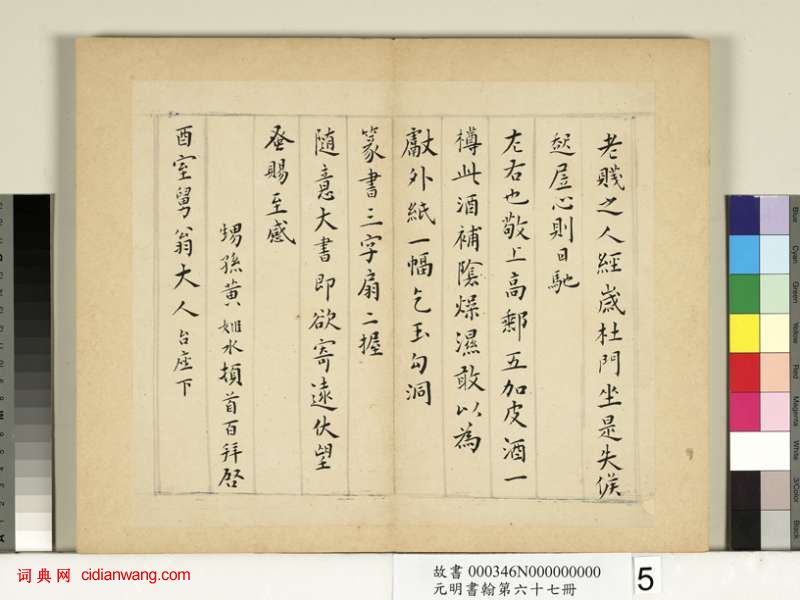 老賤之人經歲杜門坐是失候
起居心則日馳
左右也敬上高郵五加皮酒一
樽此酒補陰燥濕敢以為
獻外紙一幅乞玉勾洞
篆書三字扇二握
隨意大書即欲寄遠伏望
蚤賜至感
甥孫黃姬水頓首百拜啓
酉室舅翁大人台座下
故書 000346N000000000
元明書翰第六十七冊
5
词典网 cidianwang.com
Blue
Cyan
Green
Yellow
Red
Magenta
White
3/Color
Black